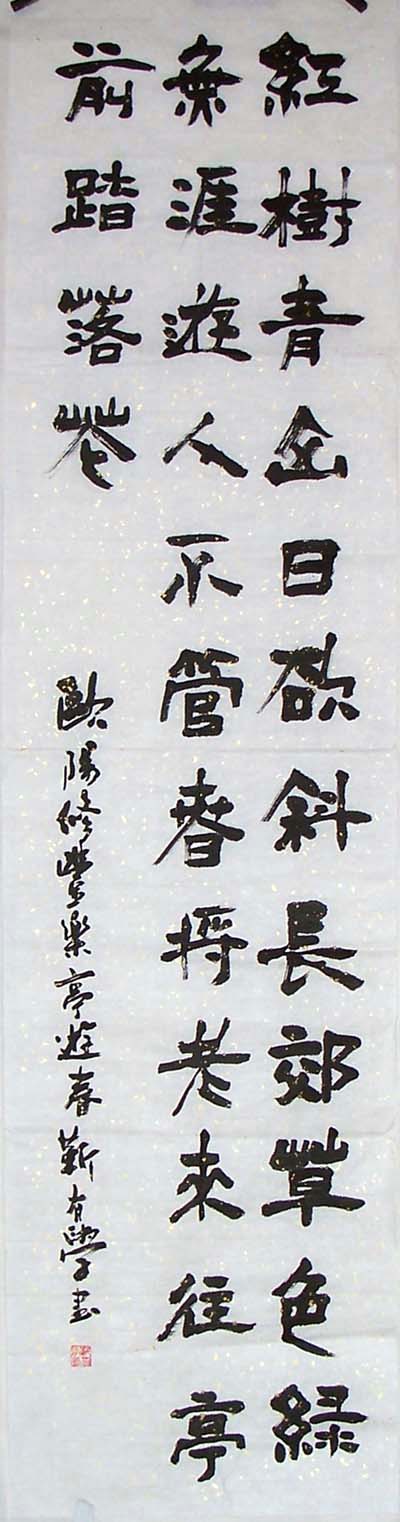 紅樹青山日欲斜長郊草色緑
無涯遊人不管春將老來往亭
前踏落花
歐陽修豐樂亭遊春靳有學書